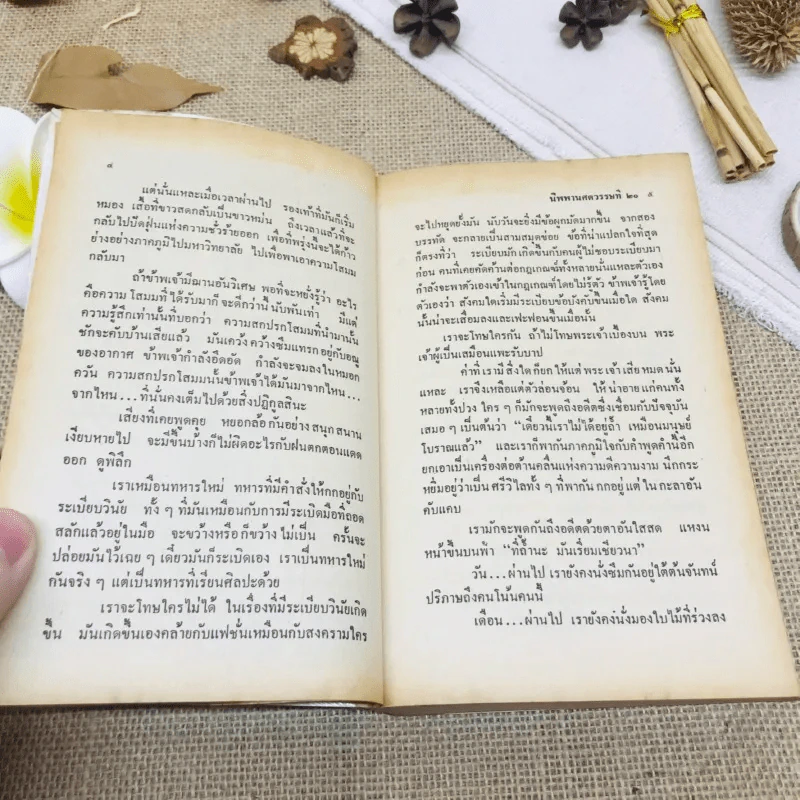 ๘
แต่นั่นแหละเมื่อเวลาผ่านไป รองเท้าที่มันก็เริ่ม
หมอง เสื้อที่ขาวสดกลับเป็นขาวหม่น ถึงเวลาแล้วที่จะ
กลับไปปัดฝุ่นแห่งความชั่วร้ายออก เพื่อที่พรุ่งนี้จะได้ก้าว
ย่างอย่างภาคภูมิไปมหาวิทยาลัย ไปเพื่อพาเอาความโสมม
กลับมา
ถ้าข้าพเจ้ามีฌานอันวิเศษ พอที่จะหยั่งรู้ว่า อะไร
คือความโสมมที่ได้รับมาก็จะดีกว่านี้นับพันเท่า มีแต่
ความรู้สึกเท่านั้นที่บอกว่า ความสกปรกโสมมที่นำมานั้น
ชักจะคับบ้านเสียแล้ว มันเคว้งคว้างซึมแทรกอยู่กับอณู
ของอากาศ ข้าพเจ้ากำลังอึดอัด กำลังจะจมลงในหมอก
ควัน ความสกปรกโสมมนั้นข้าพเจ้าได้มันมาจากไหน...
จากไหน...ที่นั่นคงเต็มไปด้วยสิ่งปฏิกูลสินะ
เสียงที่เคยพูดคุย หยอกล้อกันอย่างสนุกสนาน
เงียบหายไป จะมีขึ้นบ้างก็ไม่ผิดอะไรกับฝนตกตอนแดด
ออก ดูพิลึก
เราเหมือนทหารใหม่ ทหารที่มีคำสั่งให้กกอยู่กับ
ระเบียบวินัย ทั้ง ๆ ที่มันเหมือนกับการมีระเบิดมือที่ถอด
สลักแล้วอยู่ในมือ จะขว้างหรือก็ขว้างไม่เป็น ครั้นจะ
ปล่อยมันไว้เฉย ๆ เดี๋ยวมันก็ระเบิดเอง เราเป็นทหารใหม่
กันจริง ๆ แต่เป็นทหารที่เรียนศิลปะด้วย
เราจะโทษใครไม่ได้ ในเรื่องที่มีระเบียบวินัยเกิด
ขึ้น มันเกิดขึ้นเองคล้ายกับแฟชั่นเหมือนกับสงครามใคร
นิพพานศตวรรษที่ ๒๑ ๙
จะไปหยุดยั้งมัน นับวันจะยิ่งมีข้อผูกมัดมากขึ้น จากสอง
บรรทัด จะกลายเป็นสามสมุดข่อย ข้อที่น่าแปลกใจที่สุด
ก็ตรงที่ว่า ระเบียบมักเกิดขึ้นกับคนผู้ไม่ชอบระเบียบมา
ก่อน คนที่เคยคัดค้านต่อกฎเกณฑ์ทั้งหลายนั่นแหละตัวเอง
กำลังจะพาตัวเองเข้าในกฎเกณฑ์โดยไม่รู้ตัว ข้าพเจ้ารู้โดย
ตัวเองว่า สังคมใดเริ่มมีระเบียบข้อบังคับขึ้นเมื่อใด สังคม
นั้นน่าจะเสื่อมลงและเฟะฟอนขึ้นเมื่อนั้น
เราจะโทษใครกัน ถ้าไม่โทษพระเจ้าเบื้องบน พระ
เจ้าผู้เป็นเสมือนแพะรับบาป
ค่าที่เรามีสิ่งใดก็ยกให้แต่พระเจ้าเสียหมดนั่น
แหละ เราจึงเหลือแต่ตัวล่อนจ้อน ให้น่าอายแก่คนทั้ง
หลายทั้งปวง ใคร ๆ ก็มักจะพูดถึงอดีตซึ่งเชื่อมกับปัจจุบัน
เสมอ ๆ เป็นต้นว่า “เดี๋ยวนี้เราไม่ได้อยู่ถ้ำ เหมือนมนุษย์
โบราณแล้ว” และเราก็พากันภาคภูมิใจกับคำพูดคำนี้อีก
ยกเอาเป็นเครื่องต่อต้านคลื่นแห่งความดีความงาม นึกกระ
หยิ่มอยู่ว่าเป็นศรีวิไลทั้ง ๆ ที่พากันกกอยู่แต่ในกะลาอัน
คับแคบ
เรามักจะพูดกันถึงอดีตด้วยตาอันใสสด แหงน
หน้าขึ้นบนฟ้า “ที่ถ้ำนะ มันเรี่ยมเชียวนา”
วัน...ผ่านไป เรายังคงนั่งซึมกันอยู่ใต้ต้นจันทน์
ปริภาษถึงคนโน้นคนนี้
เดือน...ผ่านไป เรายังคงนั่งมองใบไม้ที่ร่วงลง